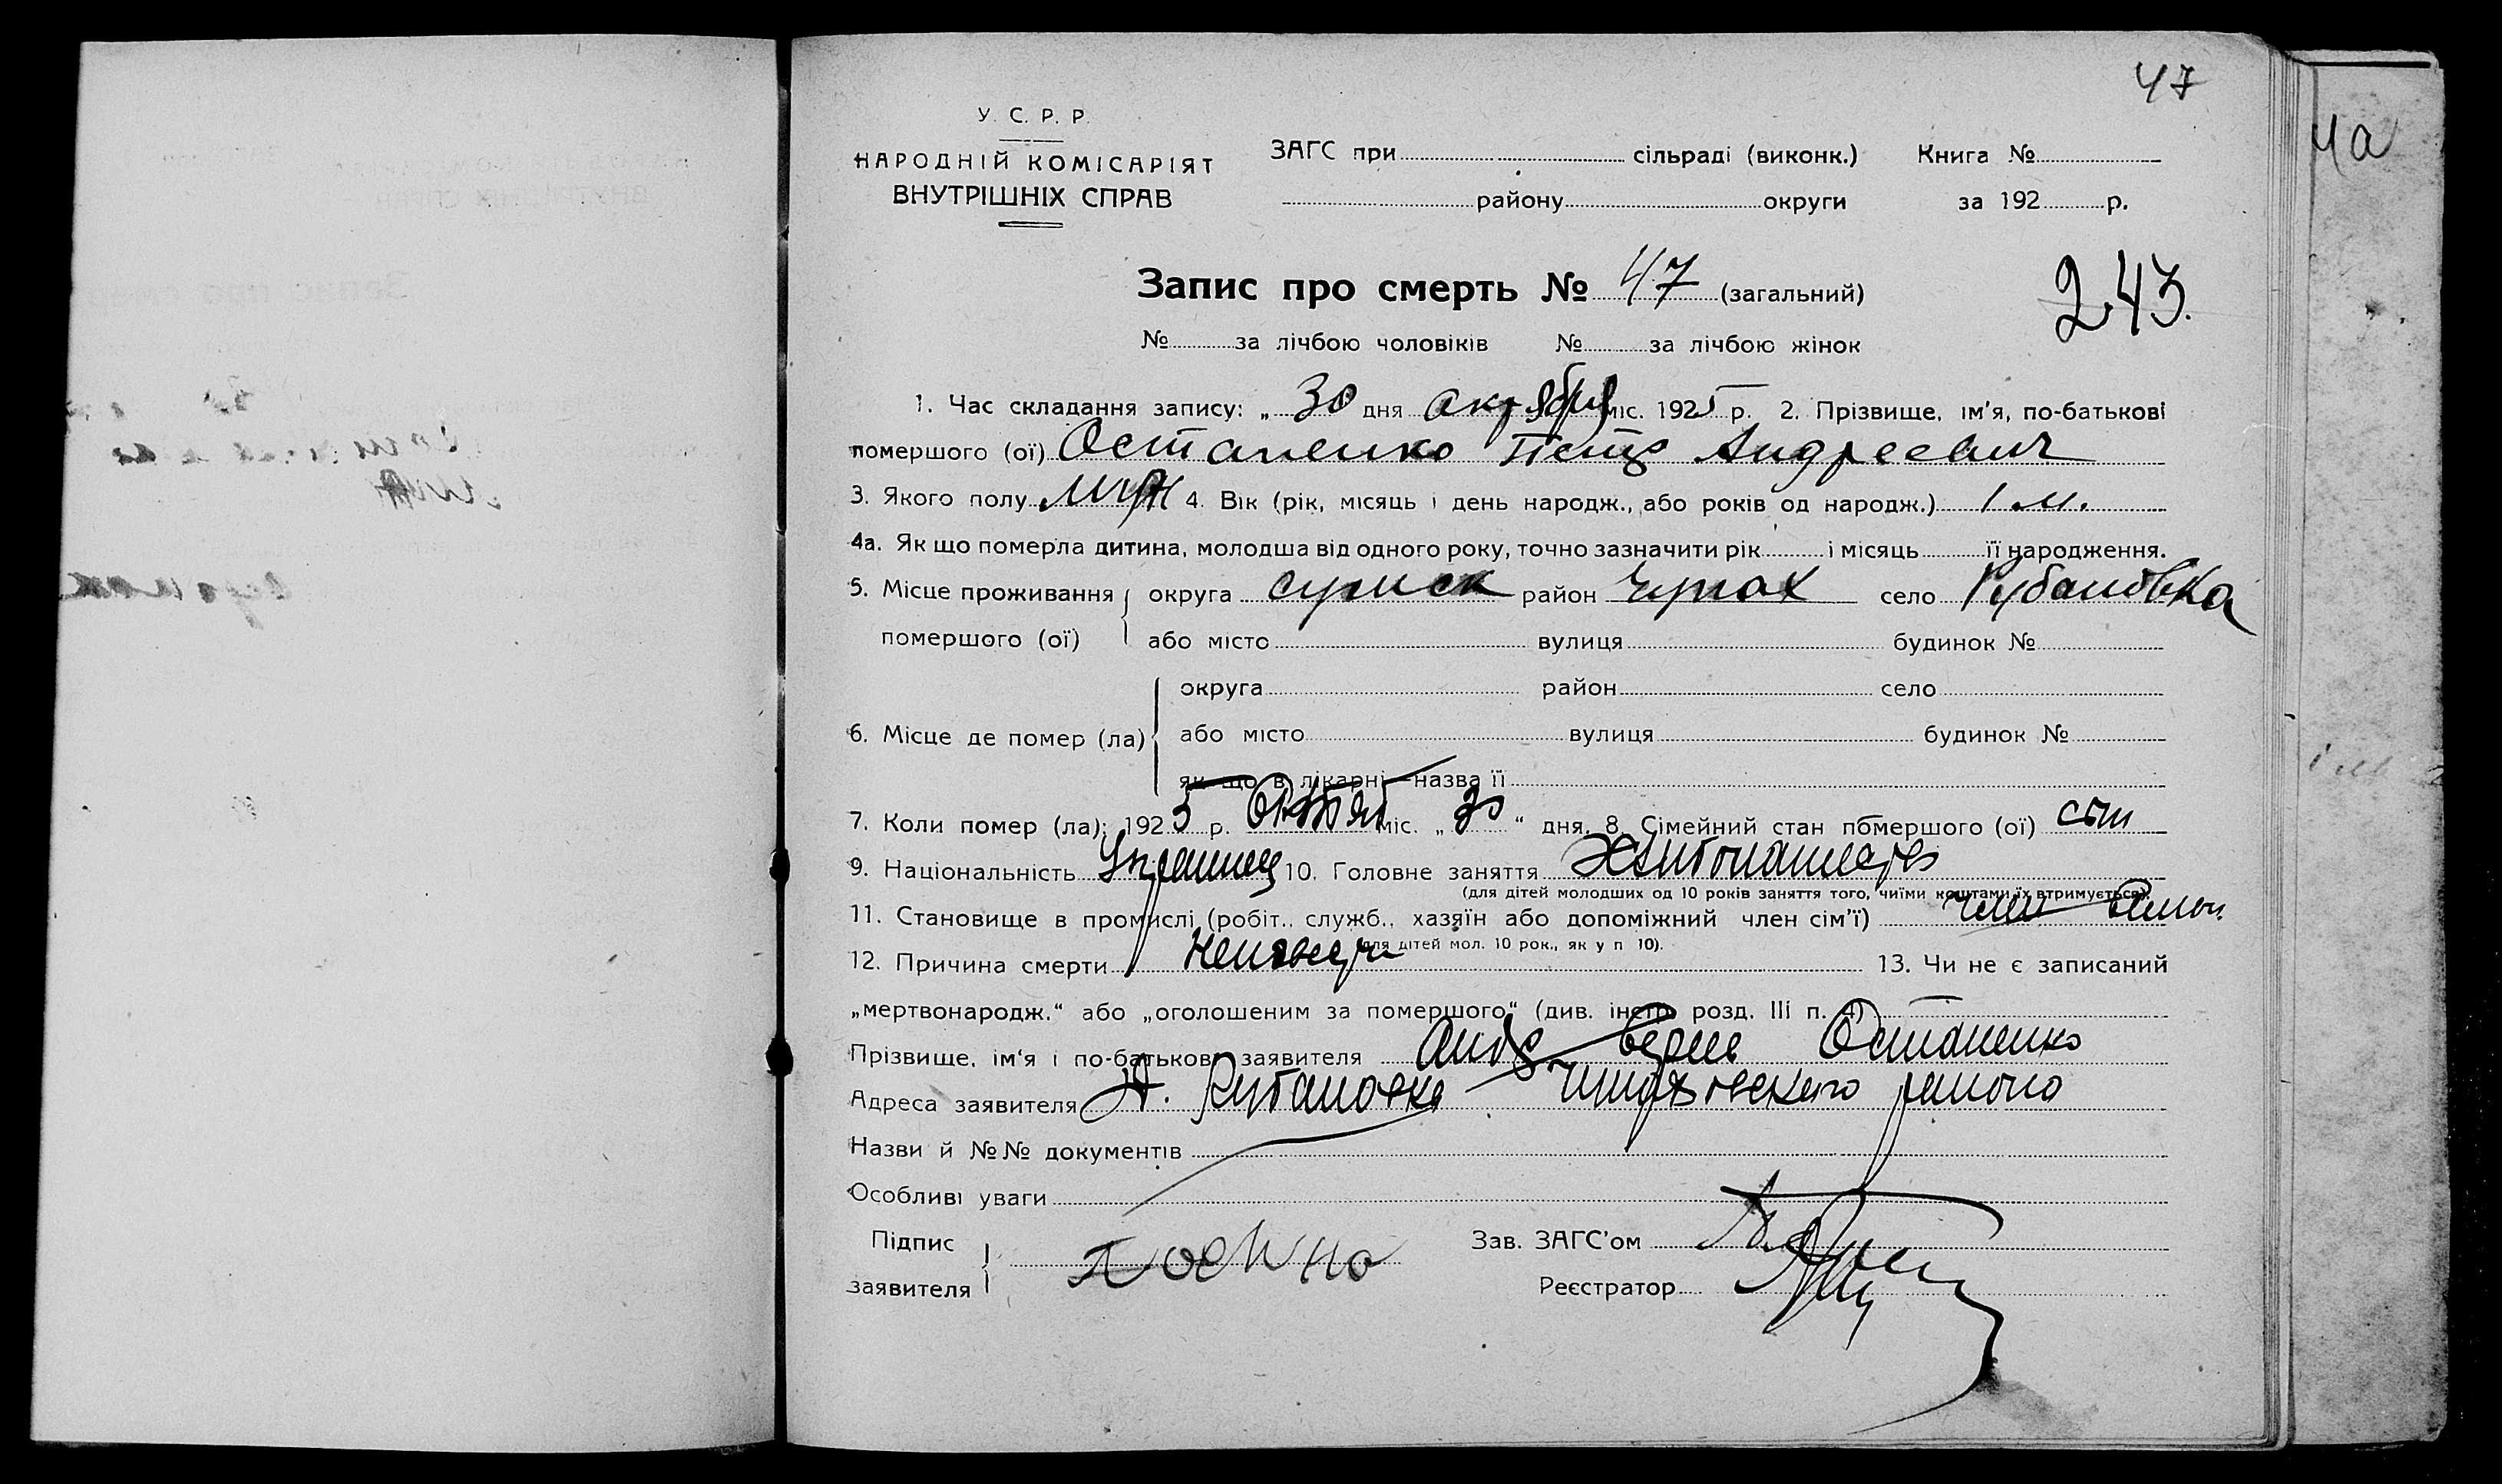 47
4а
У. С. Р. Р.
НАРОДНІЙ КОМІСАРІЯТ
ВНУТРІШНІХ СПРАВ
ЗАГС при сільраді (виконк.) Книга №
району округи за 192 р.
Запис про смерть № 47 (загальний)
243.
№ за лічбою чоловіків № за лічбою жінок
1. Час складання запису: „ 30 дня октября міс. 1925 р. 2. Прізвище, ім'я, по-батькові
помершого (ої) Остапенко Петр Андреевич
3. Якого полу муж 4. Вік (рік, місяць і день народж., або років од народж.) 1 м.
4а. Як що померла дитина, молодша від одного року, точно зазначити рік і місяць її народження.
5. Місце проживання помершого (ої) округа сумск район село Рубановка
або місто вулиця будинок №
6. Місце де помер (ла) округа район село
або місто вулиця будинок №
як що в лікарні—назва її
7. Коли помер (ла): 1925 р. Октяб міс. „ 30 “ дня. 8. Сімейний стан помершого (ої) сын
9. Національність Украинец 10. Головне заняття Хлебопашество
(для дітей молодших од 10 років заняття того, чиїми коштами їх втримується).
11. Становище в промислі (робіт., служб., хазяїн або допоміжний член сім'ї) член
(для дітей мол. 10 рок., як у п 10).
12. Причина смерти 13. Чи не є записаний
„мертвонародж.“ або „оголошеним за помершого“ (див. інстр. розд. III п. 4) —
Прізвище, ім'я і по-батькові заявителя Остапенко
Адреса заявителя Рубановка района
Назви й №№ документів
Особливі уваги
Підпис заявителя
Зав. ЗАГС'ом
Реєстратор